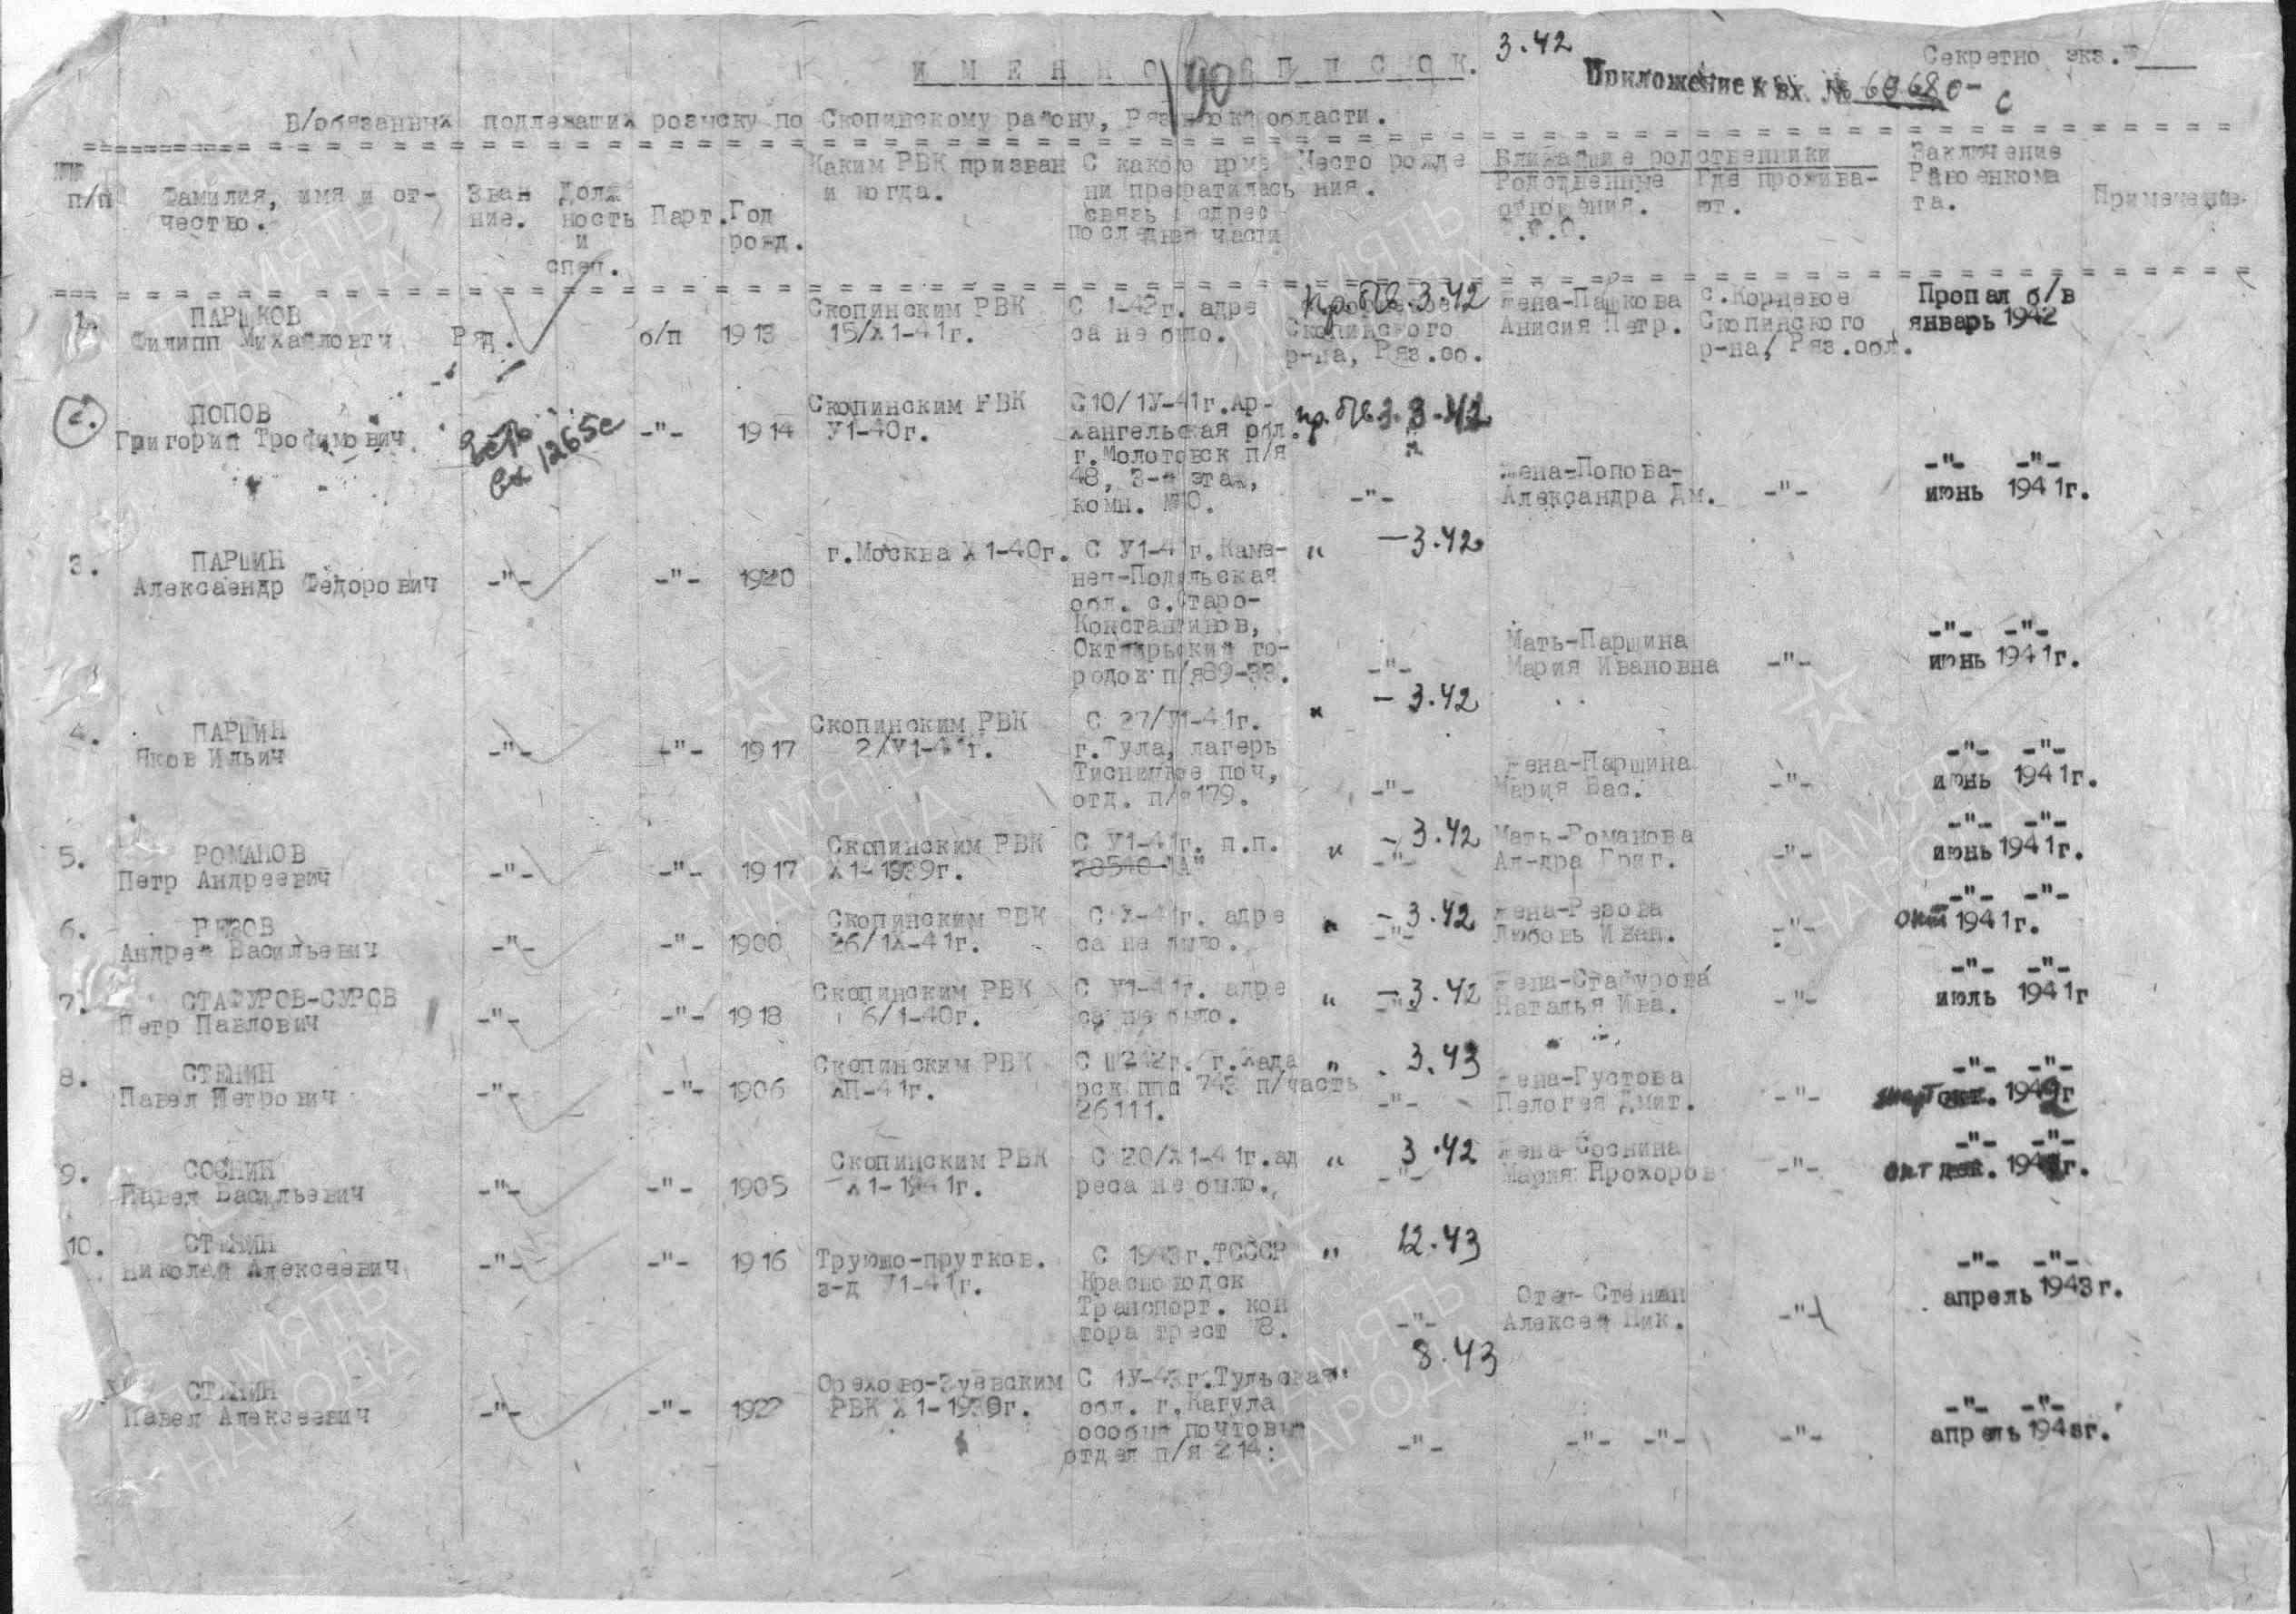 3.42
Секретно экз.
ИМЕННОЙ СПИСОК.
90
Приложение к вх. № 60680-с
В/обязанных подлежащих розыску по Скопинскому району, Рязанской области.
п/п Фамилия, имя и отчество. Зван ние. Долж ность и спец. Парт. Год рожд. Каким РВК призван и когда. С какого врме ни прекратилась связь и адрес последней части Место рожде ния. Ближайшие родственники Родственные отношения. Ф.И.О. Где прожива- ют. Заключение Райвоенкома та. Примечание
1. ПАРШКОВ
Филипп Михайлович Ряд. б/п 1913
Скопинским РВК
15/Х1-41г.
С 1-42г. адре
са не было.
пр. б/в 3.42
Скопинского
р-на, Ряз.об.
Жена-Пашкова
Анисия Петр.
с.Корневое
Скопинского
р-на, Ряз.обл.
Пропал б/в
январь 1942
2. ПОПОВ
Григорий Трофимович
вх 1265с
-"- 1914
Скопинским РВК
У1-40г.
С10/1У-41г.Ар-
хангельская обл.
г.Молотовск п/я
48, 3-й этаж,
комн. №0.
пр. б/в 3.42
-"-
Жена-Попова-
Александра Дм.
-"-
-"- -"-
июнь 1941г.
3. ПАРШИН
Алексаендр Федорович
-"- -"- 1920
г.Москва Х1-40г.
С У1-41г.Каме-
нец-Подольская
обл. с.Старо-
Константинов,
Октябрьский го-
родок п/я89-33.
" -3.42
-"-
Мать-Паршина
Мария Ивановна
-"-
-"- -"-
июнь 1941г.
4. ПАРШИН
Яков Ильич
-"- -"- 1917
Скопинским РВК
2/У1-41г.
С 27/У1-41г.
г.Тула, лагерь
Тисницкое поч,
отд. п/я179.
" -3.42
-"-
Жена-Паршина
Мария Вас.
-"-
-"- -"-
июнь 1941г.
5. РОМАНОВ
Петр Андреевич
-"- -"- 1917
Скопинским РВК
Х1-1939г.
С У1-41г. п.п.
" -3.42
-"-
Мать-Романова
Ал-дра Григ.
-"-
-"- -"-
июнь 1941г.
6. РЕЗОВ
Андрей Васильевич
-"- -"- 1900
Скопинским РВК
26/1Х-41г.
С Х-41г. адре
са не было.
" -3.42
-"-
Жена-Резова
Любовь Иван.
-"-
-"- -"-
окт 1941г.
7. СТАФУРОВ-СУРОВ
Петр Павлович
-"- -"- 1918
Скопинским РВК
6/1-40г.
С У1-41г. адре
са не было.
" -3.42
-"-
Жена-Стафурова
Наталья Ива.
-"-
-"- -"-
июль 1941г
8. СТЕНИН
Павел Петрович
-"- -"- 1906
Скопинским РВК
ХП-41г.
743 п/часть
26111.
" 3.43
-"-
Жена-Густова
Пелогея Дмит.
-"-
-"- -"-
1942г
9. СОСНИН
Павел Васильевич
-"- -"- 1905
Скопинским РВК
Х1-1941г.
С 20/Х1-41г.ад
реса не было.
" 3.42
-"-
Жена-Соснина
Мария Прохоров
-"-
-"- -"-
10. СТЕНИН
Николай Алексеевич
-"- -"- 1916
прутков.
з-д У1-41г.
С 1943г.ТСССР
Красноводск
Транспорт. кон
тора трест 8.
" 12.43
-"-
Отец-Стенин
Алексей Ник.
-"-
-"- -"-
апрель 1943г.
СТЕНИН
Павел Алексеевич
-"- -"- 1922
Орехово-Зуевским
РВК Х1-1939г.
С 1У-43г.Тульская
обл. г.
особый почтовый
отдел п/я 214:
" 8.43
-"-
-"- -"-
-"-
-"- -"-
апрель 1943г.
ПАМЯТЬ
НАРОДА